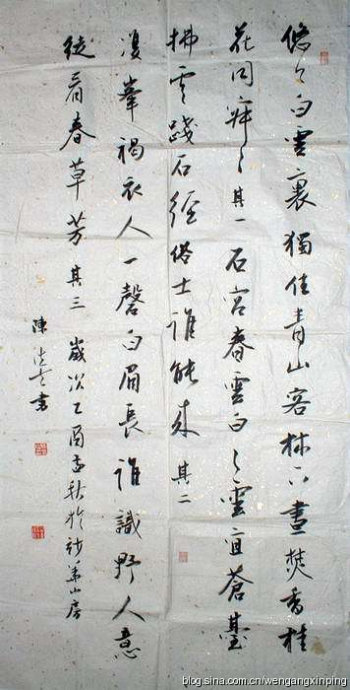 悠々白雲裏獨住青山客林下晝焚香桂
花同寂々其一石宮春雲白々雲宜蒼苔
拂雲踐石徑俗士誰能來其二
峯褐衣人一磬白眉長誰識野人意
徒看春草芳其三歲次乙酉秋於山房
陳書
blog.sina.com.cn/wengangxinping